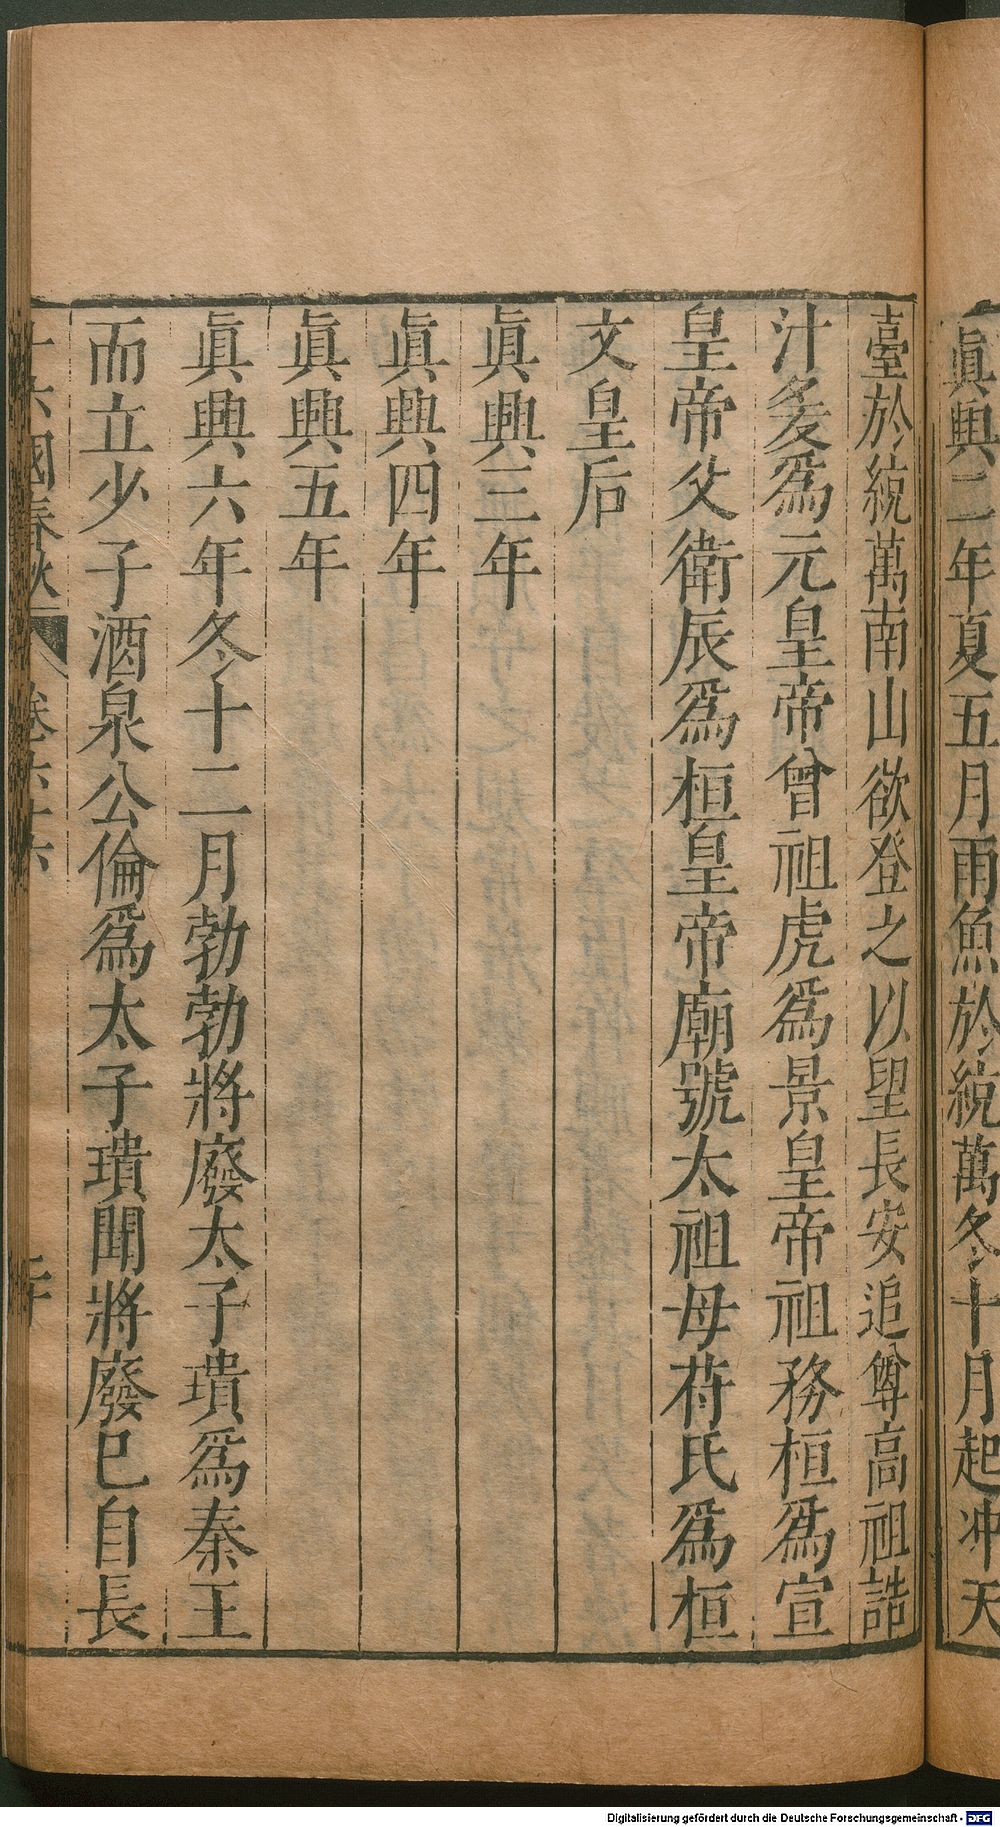 眞興二年夏五月雨魚於統萬冬十月起冲天
臺於統萬南山欲登之以望長安追尊高祖誥
汁爰爲元皇帝曾祖虎爲景皇帝祖務桓爲宣
皇帝父衛辰爲桓皇帝廟號太祖母苻氏爲桓
文皇后
眞興三年
眞興四年
眞興五年
眞興六年冬十二月勃勃將廢太子璝爲秦王
而立少子酒泉公倫爲太子璝聞將廢已自長
十六國春秋 卷六十六
Digitalisierung gefördert durch die Deutsche Forschungsgemeinschaft - DFG